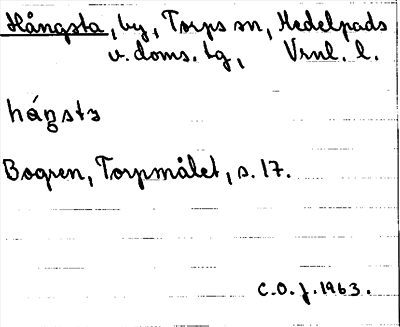 Hångsta, by, Torps sn, Medelpads
v. doms. tg, Vrnl. l.
háŋstɜ
Bogren, Torpmålet, s. 17.
C.O.J. 1963.